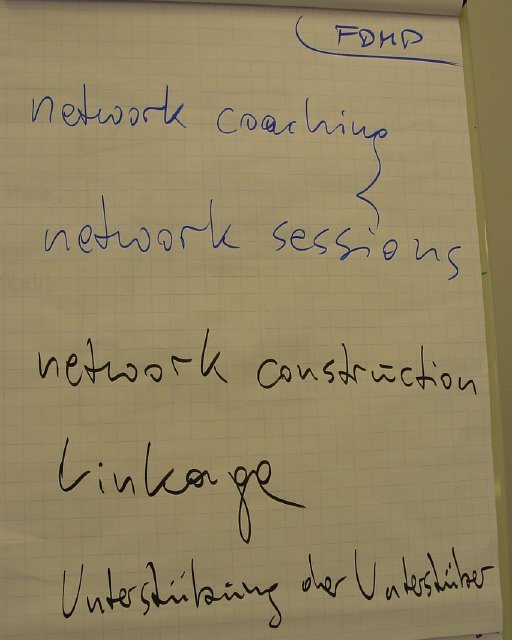 FDMD
network coaching
network sessions
network construction
Linkage
Unterstützung der Unterstützer